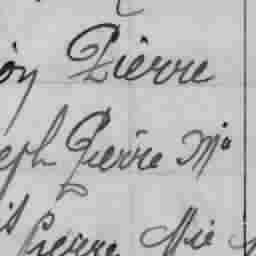 on Pierre
eph Pierre Mo
is Pierre Mie